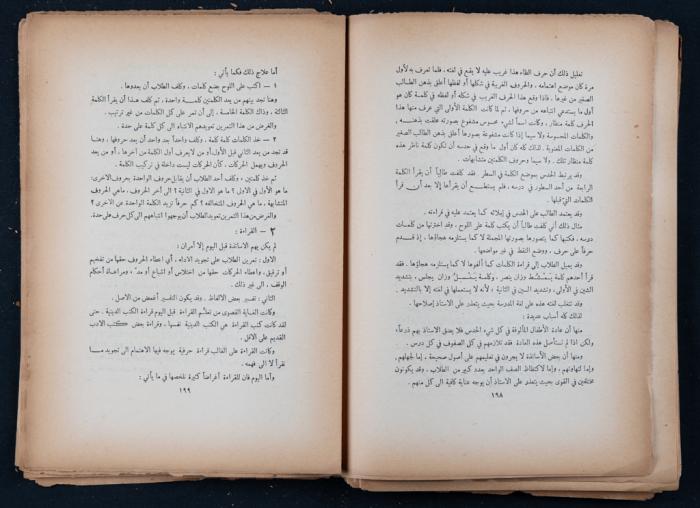 تعليل ذلك أن حرف الظاء هذا غريب عليه لا يقع في لغته، فلما تعرف به لأول
مرة كان موضع اهتمامه. والحروف الغريبة في شكلها أو لفظها أعلق بذهن الطالب
الصغير من غيرها. فاذا وقع هذا الحرف الغريب في شكله أو لفظه في كلمة كان هو
أول ما يستدعي انتباهه من حروفها. ثم لما كانت الكلمة الأولى التي عرف منها هذا
الحرف كلمة منظار، وكانت اسماً لشيء محسوس مشفوعة بصورته علقت بذهنه،
والكلمات المحسوسة ولا سيما إذا كانت مشفوعة بصورها أعلق بذهن الطالب الصغير
من الكلمات المعنوية. لذلك كان كأول ما وقع في حدسه أن تكون كلمة ناظر هذه
كلمة منظار تلك. ولا سيما وحروف الكلمتين متشابهات.
وقد يرتبط الحدس بموضع الكلمة في السطر. فقد طالباً أن يقرأ الكلمة
الرابعة من أحد السطور في درسه، فلم يستطع أن يقرأها إلا بعد أن قرأ
الكلمات التي قبلها.
وقد يعتمد الطالب على الحدس في إملائه كما يعتمد عليه في قراءته.
مثال ذلك أني كلفت طالباً أن يكتب كلمة على اللوح. وقد اخترتها من كلمات
درسه، فكتبها كما يتصورها بصورتها المجملة لا كما يستلزمه هجاؤها، إذ قدم
حرفاً على حرف، ووضع النقط في غير مواضعها.
وقد يميل الطلاب إلى قراءة الكلمات كما ألفوها لا كما يستلزمه هجاؤها. فقد
قرأ أحدهم كلمة يمشط وزان ينصر وكلمة يشمل وزان يجلس، بتشديد
الشين في الأولى، وتشديد السين في الثانية؛ لأنه لا يستعملها في لغته إلا بالتشديد.
وقد تتغلب لغته هذه على لغة المدرسة بحيث يتعذر على الاستاذ إصلاحها.
لذلك كله أسباب عديدة:
منها أن عادة الأطفال المألوفة في كل شيء الحدس فلا يضق الاستاذ بهم ذرعاً،
ولكن اذا لم تستأصل هذه العادة فقد تلازمهم في كل الصفوف في كل درس.
ومنها أن بعض الأساتذة لا يجرون في تعليمهم على أصول صحيحة، إما لجهلهم،
وإما لتهاونهم، وإما لاكتظاظ الصف الواحد بعدد كبير من الطلاب، وقد يكونون
مختلفين في القوى بحيث يتعذر على الاستاذ أن يوجه عناية كافية الى كل منهم.
١٩٨
أما علاج ذلك فكما يأتي:
١ — اكتب على اللوح بضع كلمات، وكلف الطلاب أن يعدوها.
وهنا تجد بينهم من يعد الكلمتين كلمة واحدة، ثم كلف هذا أن يقرأ الكلمة
الثالثة، وذاك الكلمة الخامسة. إلى أن تمر على كل الكلمات من غير ترتيب.
والغرض من هذا التمرين تعويدهم الانتباه الى كل كلمة على حدة.
٢ — خذ الكلمات كلمة كلمة. وكلف واحداً بعد واحد أن يعد حروفها. وهنا
قد تجد من يعد الثاني قبل الأول أو من لا يعرف أول الكلمة من آخرها، أو من يعد
الحروف ويهمل الحركات. كأن الحركات ليست داخلة في تركيب الكلمة.
ثم خذ كلمتين، وكلف أحد الطلاب أن يقابل حروف الواحدة بحروف الاخرى.
ما هو الأول في الاولى؟ ما هو الاول في الثانية؟ الى آخر الحروف. ماهي الحروف
المتشابهة. ما هي الحروف المتخالفة؟ كم حرفاً تزيد الكلمة الواحدة عن الاخرى؟
والغرض من هذا التمرين تعويد الطلاب أن يوجهوا انتباههم الى كل حرف على حدة.
٣ — القراءة:
لم يكن يهم الاساتذة قبل اليوم إلا أمران:
الاول: تمرين الطلاب على تجويد الاداء، أي اعطاء الحروف حقها من تفخيم
أو ترقيق، واعطاء الحركات حقها من اختلاس أو اشباع أو مد، ومراعاة أحكام
الوقف. الى غير ذلك.
الثاني: تفسير بعض الالفاظ. وقد يكون التفسير أغمض من الاصل.
وكانت الغاية القصوى من تعلم القراءة قبل اليوم قراءة الكتب الدينية. حتى
لقد كانت كتب القراءة هي الكتب الدينية نفسها، وقراءة بعض كتب الادب
القديم على الاقل.
وكانت القراءة على الغالب قراءة حرفية يوجه فيها الاهتمام الى تجويد ما
نقرأ لا الى فهمه.
وأما اليوم فان للقراءة أغراضاً كثيرة نلخصها في ما يأتي:
١٩٩